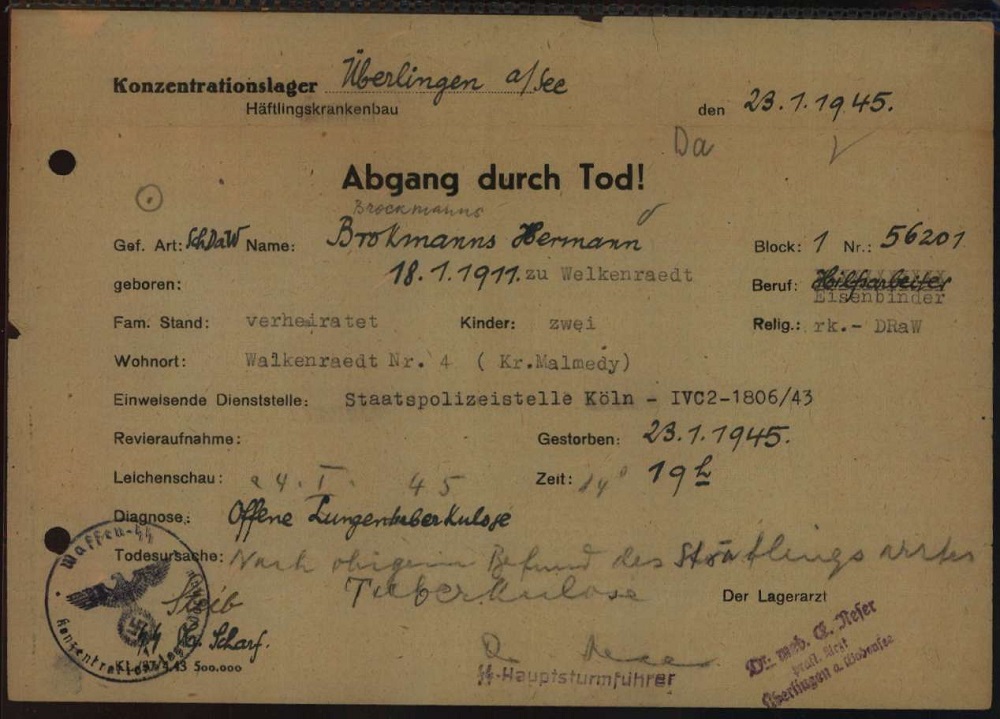 Konzentrationslager Überlingen a/See
Häftlingskrankenbau
den 23.1.1945.
Da
Abgang durch Tod!
Brockmanns
Gef. Art: SchDaW Name: Brokmanns Hermann Block: 1 Nr.: 56201
geboren: 18.1.1911. zu Welkenraedt Beruf: Hilfsarbeiter
Eisenbinder
Fam. Stand: verheiratet Kinder: zwei Relig.: rk.- DRaW
Wohnort: Walkenraedt Nr. 4 ( Kr.Malmedy)
Einweisende Dienststelle: Staatspolizeistelle Köln - IVC2-1806/43
Revieraufnahme: Gestorben: 23.1.1945.
Leichenschau: 24. I. 45 Zeit: 19 h
Diagnose: Offene Lungentuberkulose
Todesursache: Nach obigem Befund des Sträflingsarztes
Tuberkulose Der Lagerarzt
Steib
Scharf.
Dr.
SS-Hauptsturmführer
Dr. med.
prakt. Arzt
Überlingen a. Bodensee
Waffen-SS
Konzentrationslager
KL /97/4.43 500.000